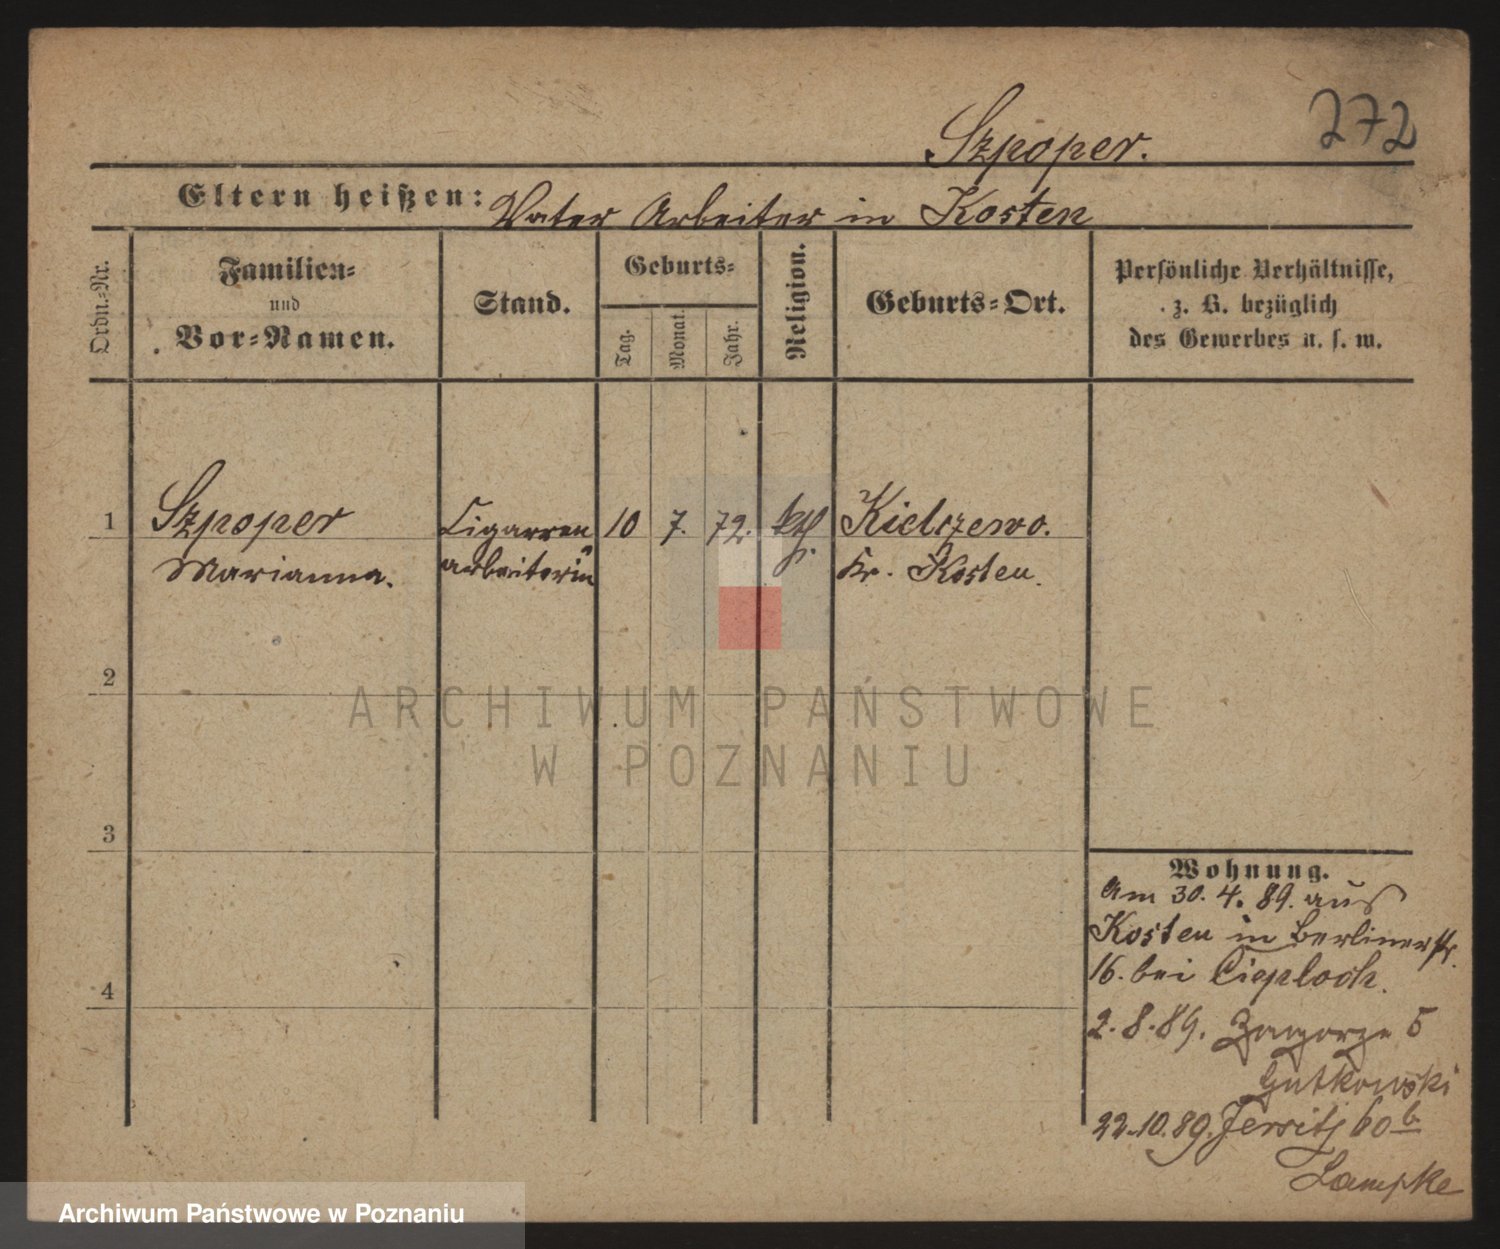 272
Szpoper.
Eltern heißen: Vater Arbeiter in Kosten
Ordn.-Nr.
Familien-
und
Vor-Namen.
Stand.
Geburts-
Tag.
Monat.
Jahr.
Religion.
Geburts-Ort.
Persönliche Verhältnisse,
z. B. bezüglich
des Gewerbes u. s. w.
1 Szpoper Cigarren 10 7. 72. kth. Kielczewo.
Marianna. arbeiterin Kr. Kosten.
2
3
4
Wohnung.
Am 30. 4. 89. aus
Kosten in Berlinerstr.
16. bei Cieploch.
2. 8. 89. Zagorze 5
Gutkowski
22.10.89. Jersitz 60b
Lampke
ARCHIWUM PAŃSTWOWE
W POZNANIU
Archiwum Państwowe w Poznaniu